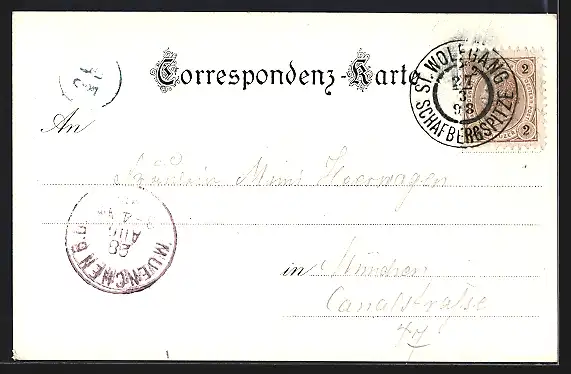 Correspondenz-Karte
ST. WOLFGANG
SCHAFBERGSPITZE
98
2
2
An
Fräulein Mimi Heerwagen
MUENCHEN
28
AUG
in München
Canalstraße
47